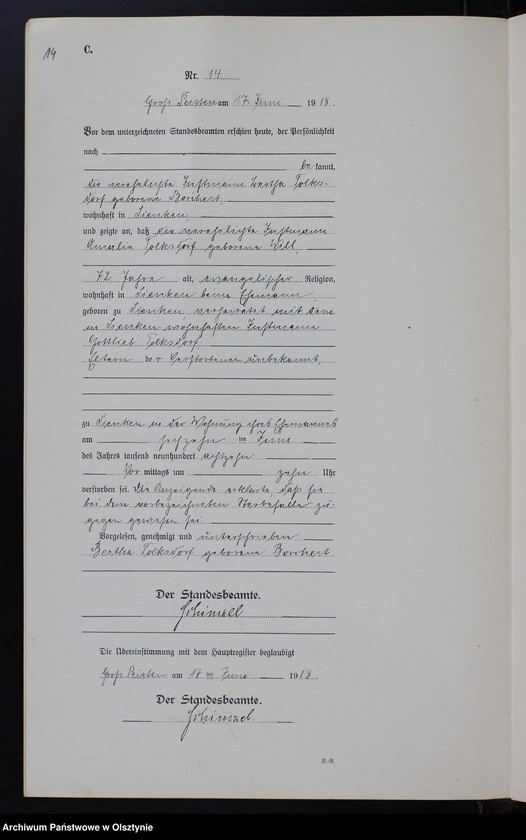 14
C.
Nr. 14
Groß Peisten am 17. Juni 1918.
Vor dem unterzeichneten Standesbeamten erschien heute, der Persönlichkeit
nach
be kannt,
die verehelichte Instmann Bertha Tolks-
dorf geborene Borchert,
wohnhaft in Sienken,
und zeigte an, daß die verehelichte Instmann
Amalie Tolksdorf geborene Will,
72 Jahre alt, evangelischer Religion,
wohnhaft in Sienken beim Ehemann,
geboren zu Sienken, verheiratet mit dem
in Sienken wohnhaften Instmann
Gottlieb Tolksdorf,
Eltern der Verstorbenen unbekannt,
zu Sienken in der Wohnung ihres Ehemannes
am sechzehn ten Juni
des Jahres tausend neunhundert achtzehn
Vor mittags um zehn Uhr
verstorben sei. Die Anzeigende erklärte, daß sie
bei dem vorbezeichneten Sterbefalle zu-
gegen gewesen sei
Vorgelesen, genehmigt und unterschrieben
Bertha Tolksdorf geborene Borchert
Der Standesbeamte.
Schimmel
Die Übereinstimmung mit dem Hauptregister beglaubigt
Groß Peisten am 17 ten Juni 1918.
Der Standesbeamte.
Schimmel.
Archiwum Państwowe w Olsztynie